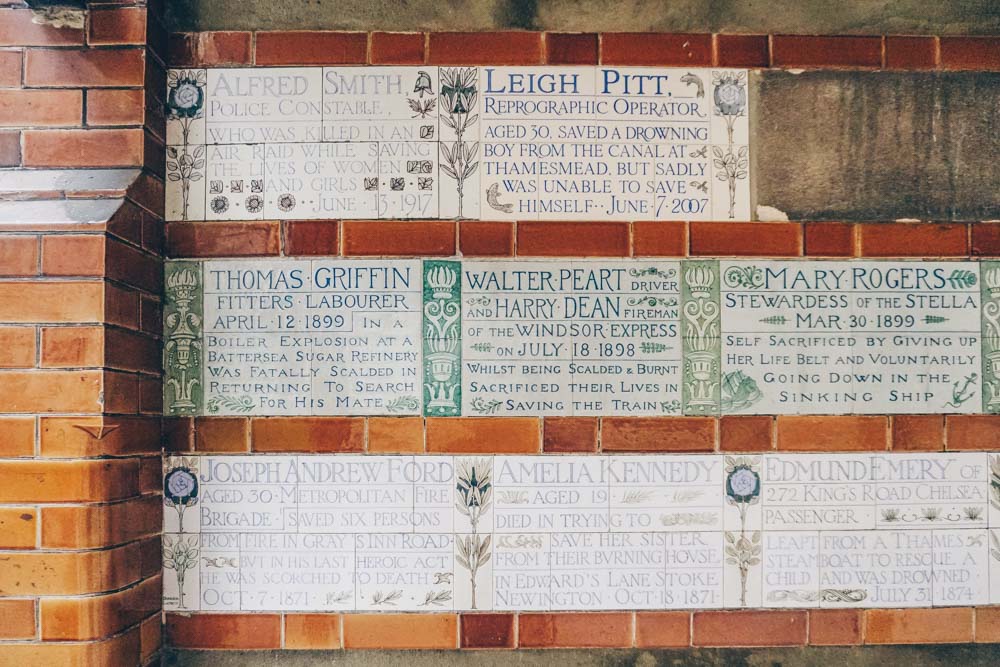 ALFRED SMITH,
POLICE CONSTABLE,
WHO WAS KILLED IN AN
AIR RAID WHILE SAVING
THE LIVES OF WOMEN
AND GIRLS
·· JUNE · 13 · 1917
LEIGH PITT,
REPROGRAPHIC OPERATOR,
AGED 30, SAVED A DROWNING
BOY FROM THE CANAL AT
THAMESMEAD, BUT SADLY
WAS UNABLE TO SAVE
HIMSELF ·· JUNE · 7 · 2007
THOMAS · GRIFFIN
FITTERS · LABOURER
APRIL · 12 · 1899 · IN A
BOILER EXPLOSION AT A
BATTERSEA SUGAR REFINERY
WAS FATALLY SCALDED IN
RETURNING TO SEARCH
FOR HIS MATE
WALTER · PEART DRIVER
AND HARRY · DEAN FIREMAN
OF THE WINDSOR EXPRESS
ON JULY · 18 · 1898
WHILST BEING SCALDED & BURNT
SACRIFICED THEIR LIVES IN
SAVING THE TRAIN
MARY · ROGERS
STEWARDESS OF THE STELLA
MAR · 30 · 1899
SELF SACRIFICED BY GIVING UP
HER LIFE BELT AND VOLUNTARILY
GOING DOWN IN THE
SINKING SHIP
JOSEPH ANDREW FORD
AGED 30 · METROPOLITAN FIRE
BRIGADE · SAVED SIX PERSONS
FROM FIRE IN GRAY'S INN ROAD
BUT IN HIS LAST HEROIC ACT
HE WAS SCORCHED TO DEATH
OCT · 7 · 1871
AMELIA KENNEDY
AGED 19
DIED IN TRYING TO
SAVE HER SISTER
FROM THEIR BVRNING HOVSE
IN EDWARD'S LANE STOKE
NEWINGTON OCT · 18 · 1871
EDMUND EMERY OF
272 KING'S ROAD CHELSEA
PASSENGER
LEAPT FROM A THAMES
STEAMBOAT TO RESCUE A
CHILD AND WAS DROWNED
JULY 31 · 1874